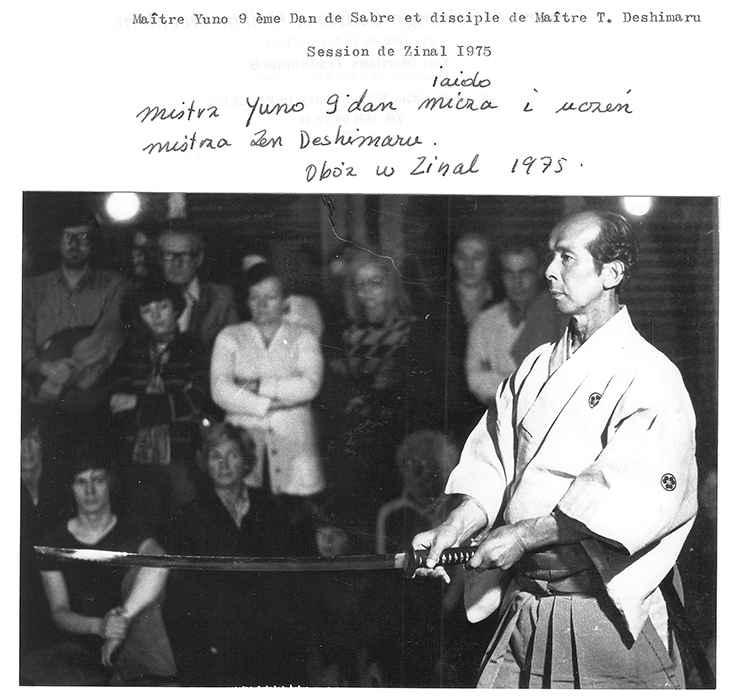 Maître Yuno 9 ème Dan de Sabre et disciple de Maître T. Deshimaru
Session de Zinal I975
iaido
mistrz Yuno 9'dan micza i uczeń
mistrza Zen Deshimaru.
Obóz w Zinal 1975.